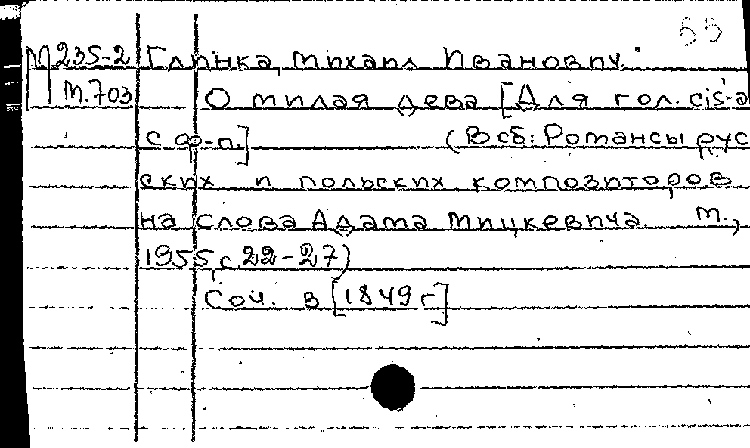 55
М 235-2 Глинка, Михаил Иванович.
м.703 О милая дева [Для гол. cis-a
с ф-п.] (В сб: Романсы рус
ских и польских композиторов
на слова Адама Мицкевича. М.,
1955, с. 22-27)
Соч. в [1849 г]